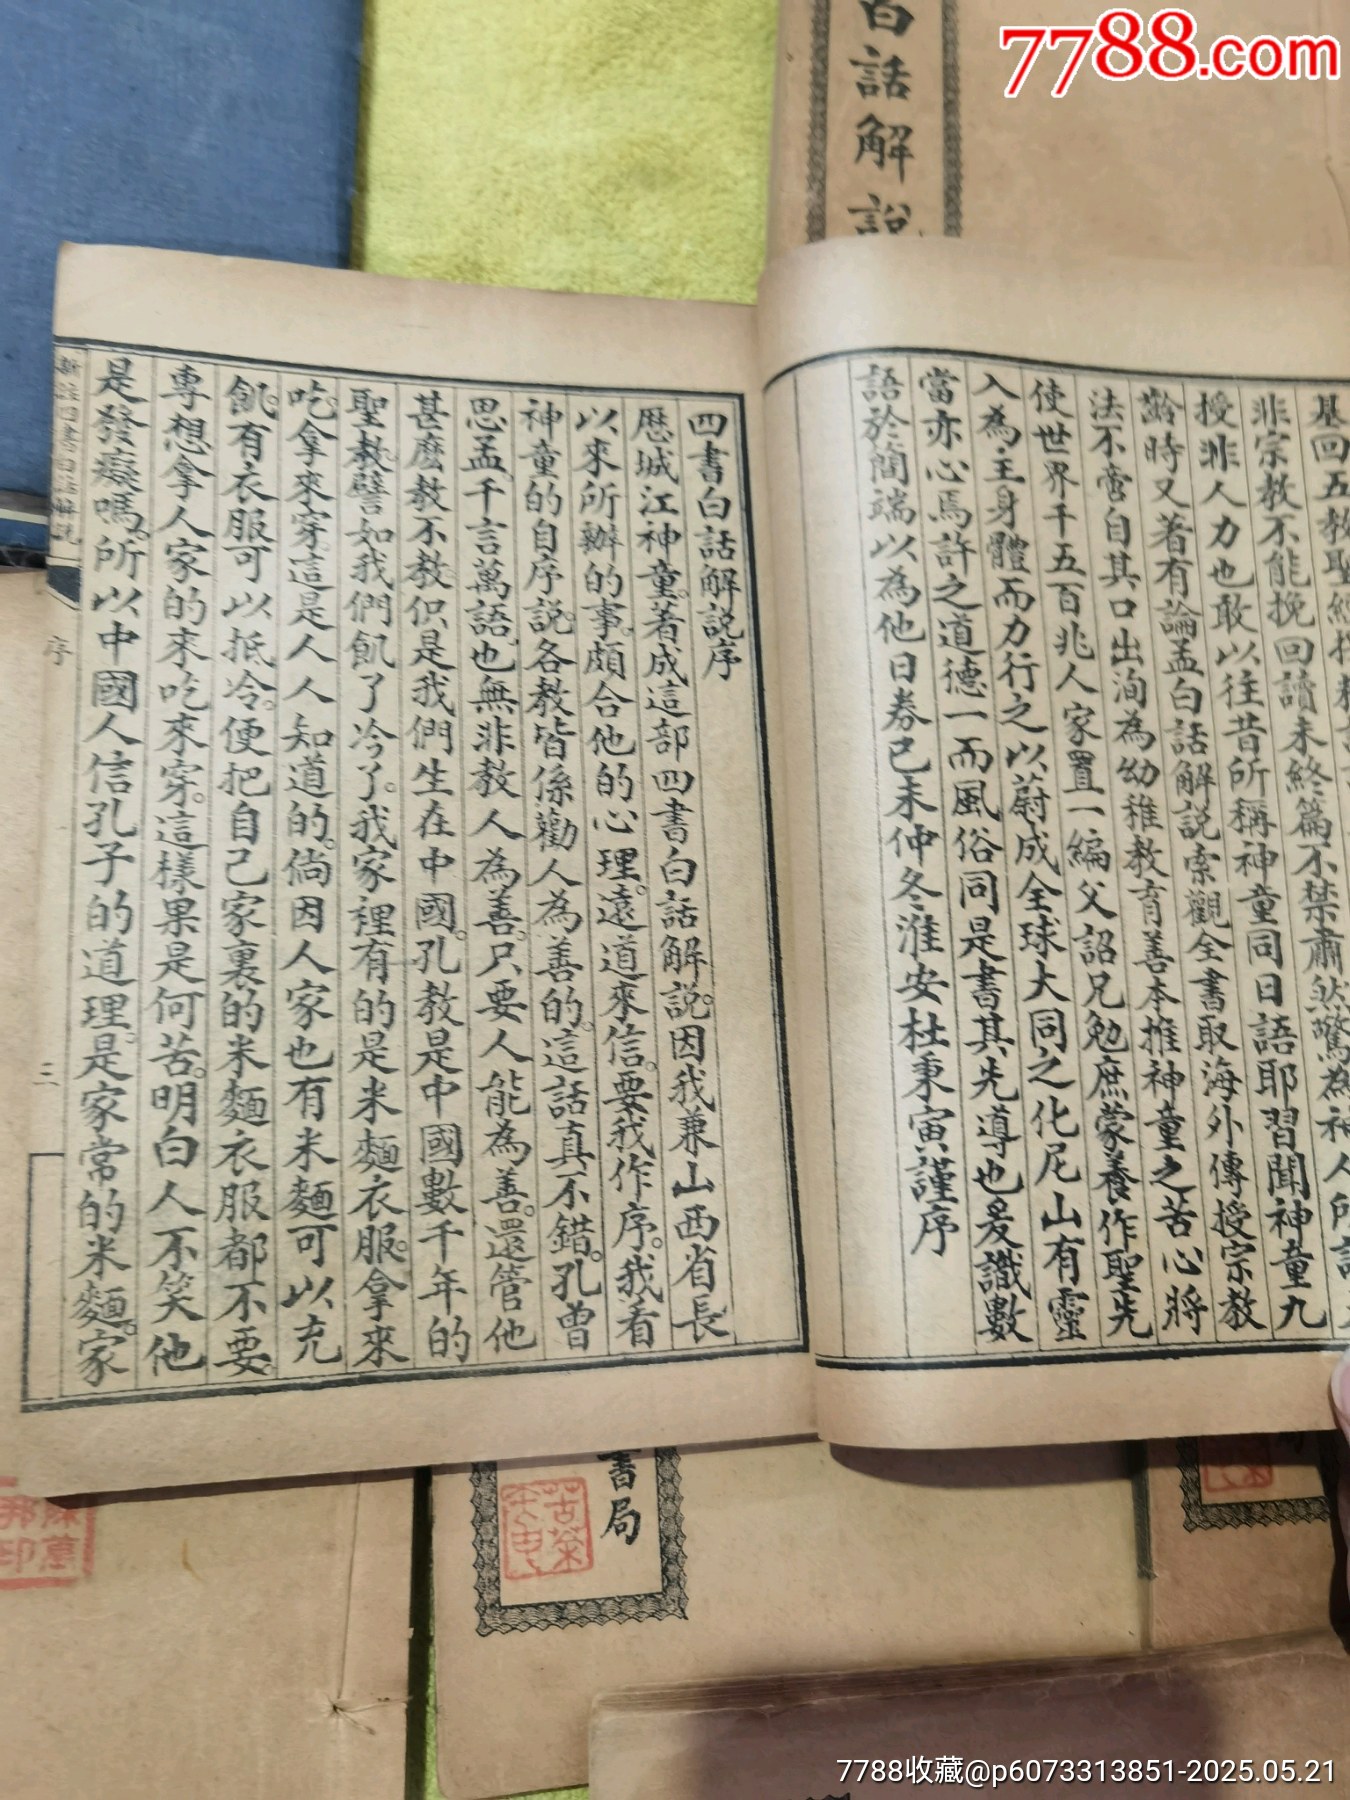 7788.com
白話解說
基回五教聖經
非宗教不能挽回讀未終篇不禁肅然驚為神人所
授非人力也敢以往昔所稱神童同日語耶習聞神童九
齡時又著有論孟白話解説索觀全書取海外傳授宗教
法不啻自其口出洵為幼稚教育善本推神童之苦心將
使世界千五百兆人家置一編父詔兄勉庶蒙養作聖先
入為主身體而力行之以蔚成全球大同之化尼山有靈
當亦心焉許之道德一而風俗同是書其先導也爰識數
語於簡端以為他日券已未仲冬淮安杜秉寅謹序
四書白話解説序
歷城江神童著成這部四書白話解説。因我兼山西省長
以來所辦的事。頗合他的心理。遠道來信。要我作序。我着
神童的自序説。各教皆係勸人為善的。這話真不錯。孔曾
思孟。千言萬語。也無非教人為善。只要人能為善。還管他
甚麽教不教。但是我們生在中國。孔教是中國數千年的
聖教。譬如我們飢了冷了。我家裡有的是米麵衣服。拿來
吃。拿來穿。這是人人知道的。倘因人家也有米麵可以充
飢。有衣服可以抵冷。便把自己家裏的米麵衣服都不要。
專想拿人家的來吃來穿。這樣果是何苦。明白人不笑他
是發癡嗎。所以中國人信孔子的道理。是家常的米麵。家
新註四書白話解説
序
三
書局
7788收藏@p6073313851-2025.05.21